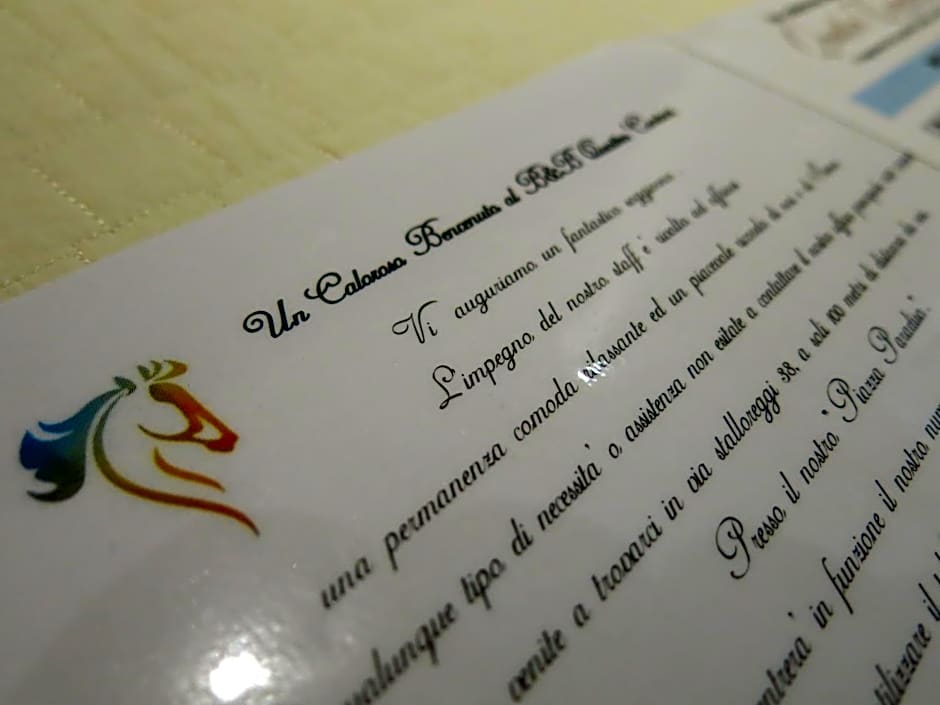 Un Caloroso Benvenuto al B&B Quattro Cantoni
Vi auguriamo un fantastico soggiorno.
L'impegno del nostro staff e' rivolto ad offrire
una permanenza comoda rilassante ed un piacevole ricordo di noi e di Siena
qualunque tipo di necessità' o assistenza non esitate a contattare il nostro
venite a trovarci in via stalloreggi 38, a soli 100 metri di distanza da
Presso il nostro "Piazza Paradiso".
entrera' in funzione il nostro
utilizzare il